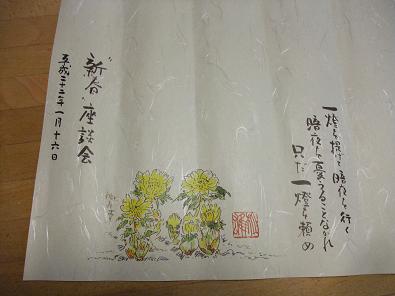 一燈を提げて暗夜を行く
暗夜を憂うることなかれ
只だ一燈を頼め
“新春”座談会
平成二十二年一月十六日